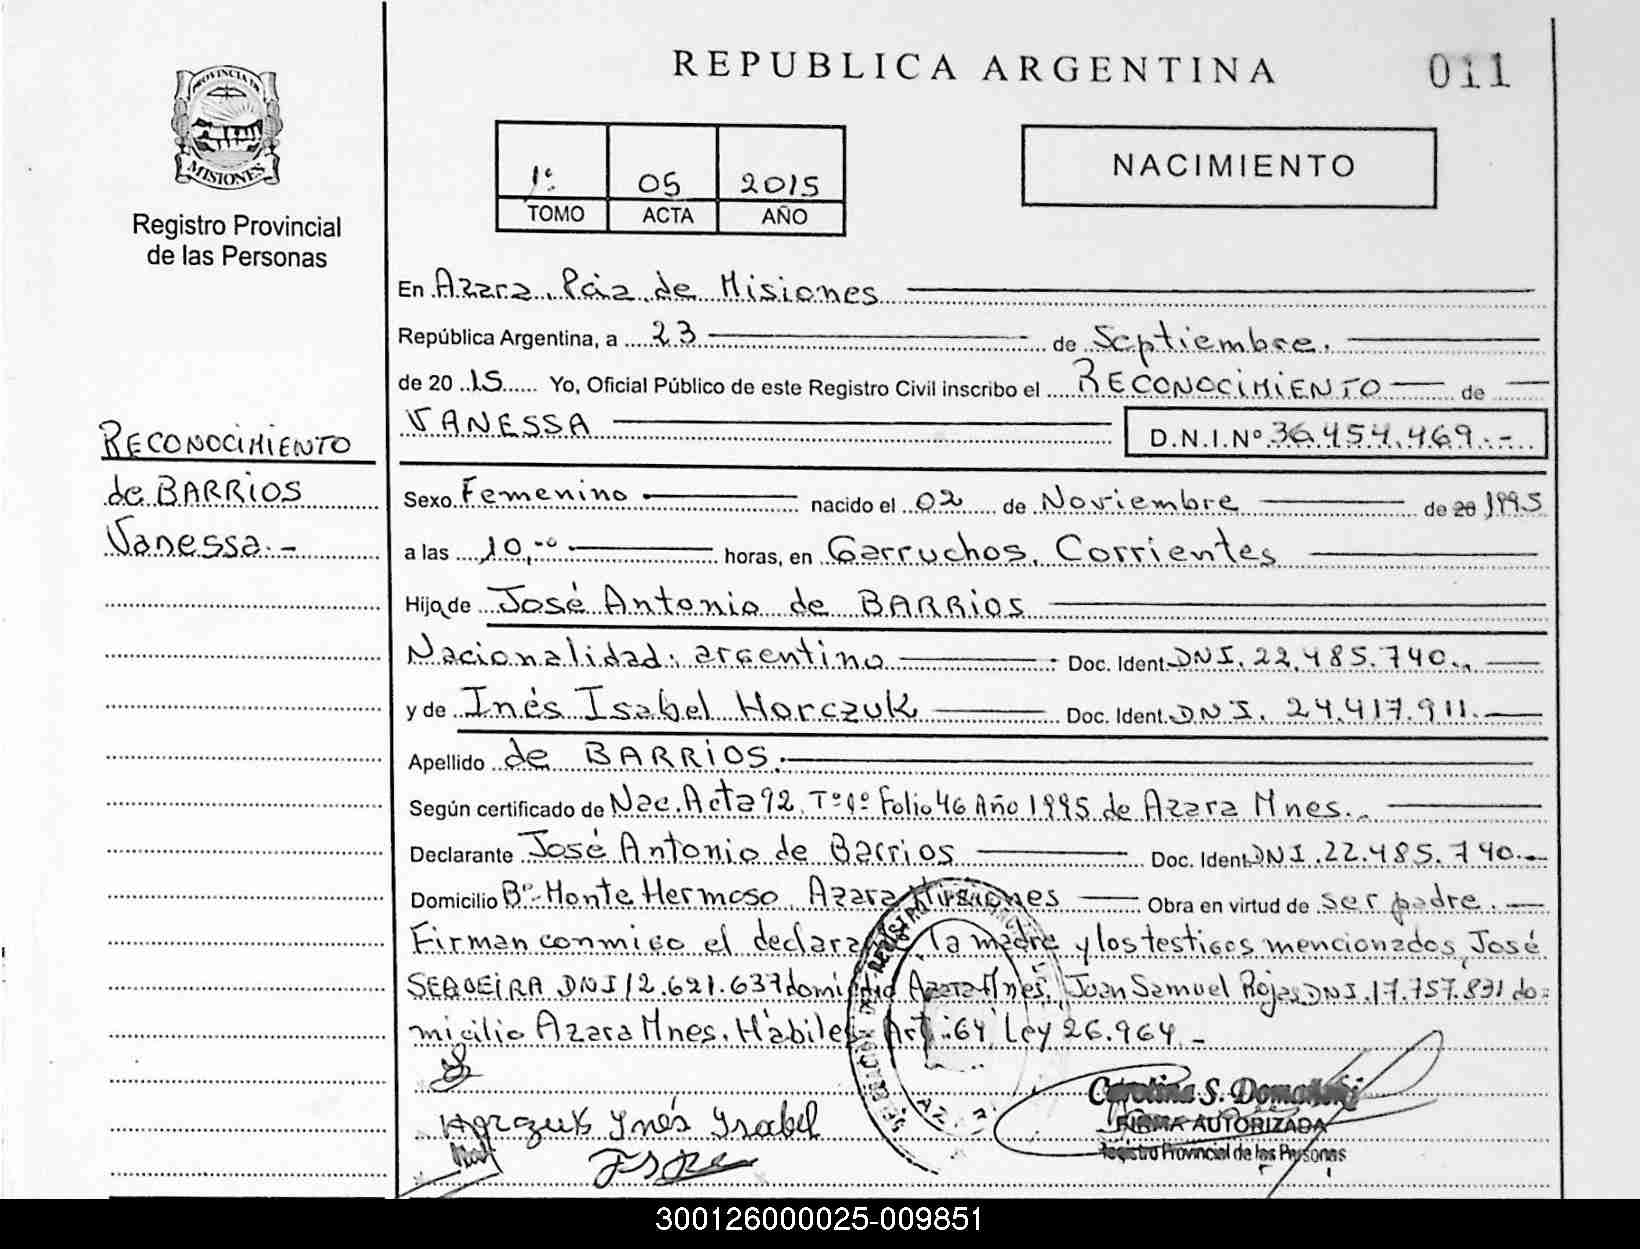 REPUBLICA ARGENTINA
011
PROVINCIA DE
MISIONES
Registro Provincial
de las Personas
1º 05 2015
TOMO ACTA AÑO
NACIMIENTO
En Azara, Pcia de Misiones
República Argentina, a 23 de Septiembre.
de 20 15 Yo, Oficial Público de este Registro Civil inscribo el RECONOCIMIENTO de
VANESSA D.N.I.Nº 36.454.469.-
RECONOCIMIENTO
de BARRIOS
Vanessa.-
Sexo Femenino nacido el 02 de Noviembre de 20 1995
a las 10,00 horas, en Garruchos, Corrientes
Hija de José Antonio de BARRIOS
Nacionalidad: argentino Doc. Ident. DNI. 22.485.740.
y de Inés Isabel Horczuk Doc. Ident. DNI. 24.417.911.
Apellido de BARRIOS.
Según certificado de Nac. Acta 92 Tº 1º Folio 46 Año 1995 de Azara Mnes.
Declarante José Antonio de Barrios Doc. Ident DNI.22.485.740.-
Domicilio Bº Monte Hermoso, Azara Misiones Obra en virtud de ser padre.
Firman conmigo el declara la madre y los testigos mencionados, José
SEQUEIRA DNI 12.621.637 domicilio Azara Mnes, Juan Samuel Rojas DNI.17.757.831 do=
micilio Azara Mnes. Hábiles Art.:64 Ley 26.964.-
Horczuk Ynés Ysabel
Carolina S. Domański
FIRMA AUTORIZADA
Registro Provincial de las Personas
300126000025-009851